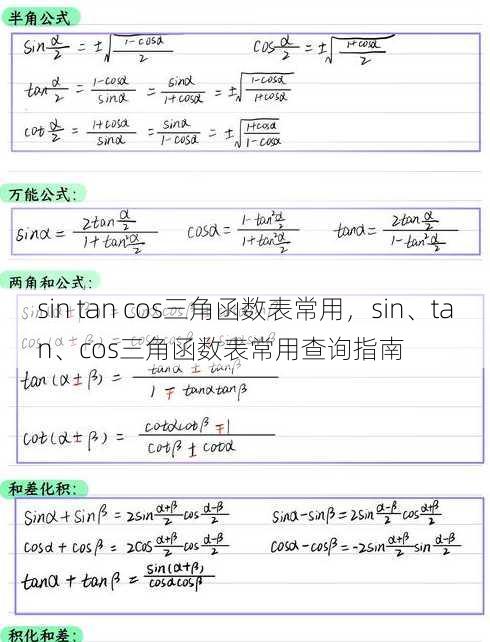 半角公式
sin α/2 = ±√(1-cosα/2) cos α/2 = ±√(1+cosα/2)
tan α/2 = 1-cosα/sinα = sinα/1+cosα = ±√(1-cosα/1+cosα)
cot α/2 = 1+cosα/sinα = sinα/1-cosα = ±√(1+cosα/1-cosα)
万能公式:
sinα = 2tan α/2 / 1+tan² α/2 cosα = 1-tan² α/2 / 1+tan² α/2 tanα = 2tan α/2 / 1-tan² α/2
两角和公式:
sin tan cos三角函数表常用，sin、ta
n、cos三角函数表常用查询指南
tan(α±β) = tanα ± tanβ / 1 ∓ tanαtanβ
cot(α±β) = cotαcotβ ∓ 1 / cotβ ± cotα
和差化积:
sinα + sinβ = 2sin α+β/2 cos α-β/2 sinα-sinβ = 2sin α-β/2 cos α+β/2
cosα + cosβ = 2cos α+β/2 cos α-β/2 cosα-cosβ = -2sin α+β/2 sin α-β/2
tanα + tanβ = sin(α+β) / cosαcosβ
积化和差: